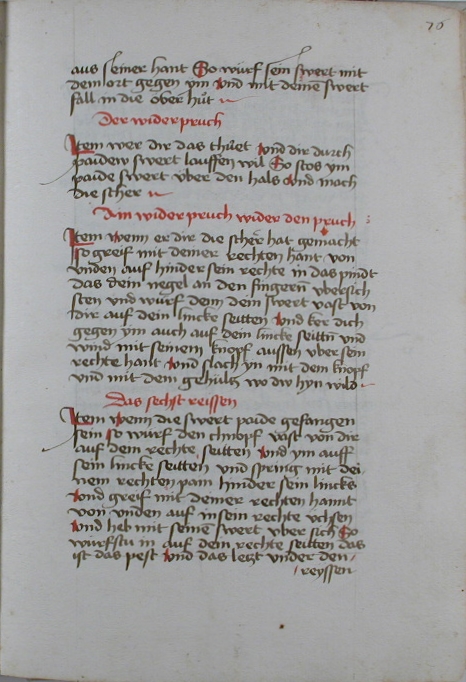 70
aus seiner hant So würf sein swert mit
dem ort gegen ym vnd mit deinē swert
fall in die ober hůt
Der widerpruch
Item wer dir das thůet vnd dir durch
paidew swert lauffen wil So stos ym
paide swert vber den hals vnd mach
die scher
Ain widerpruch wider den pruch
Item wenn er dir die scher hat gemacht
so greif mit deiner rechten hant von
vnden auf hinder sein rechte in das pindt
das dein negel an den fingern̄ vbersich
sten vnd würf denn dein swert vast von
dir auf dein lincke seitten vnd ker dich
gegen ym auch auf dein lincke seittn̄ vnd
wind mit seinem knopf aussen vber sein
rechte hant vnd slach yn mit dem knopf
vnd mit dem gehültz wo dw hyn wild
Das sechst reissen
Item wenn die swert paide gefangen
sein so würf den chnopf vast von dir
auf dein rechte seitten vnd ym auff
sein lincke seitten vnd spring mit dei
nem rechten pain hinder sein lincks
vnd greif mit deiner rechten hannt
von vnden auf in sein rechte vchsen
vnd heb mit seinē swert vber sich So
würfstu in auf dein rechte seitten das
ist das pest vnd das letzt vnder den
reyssen